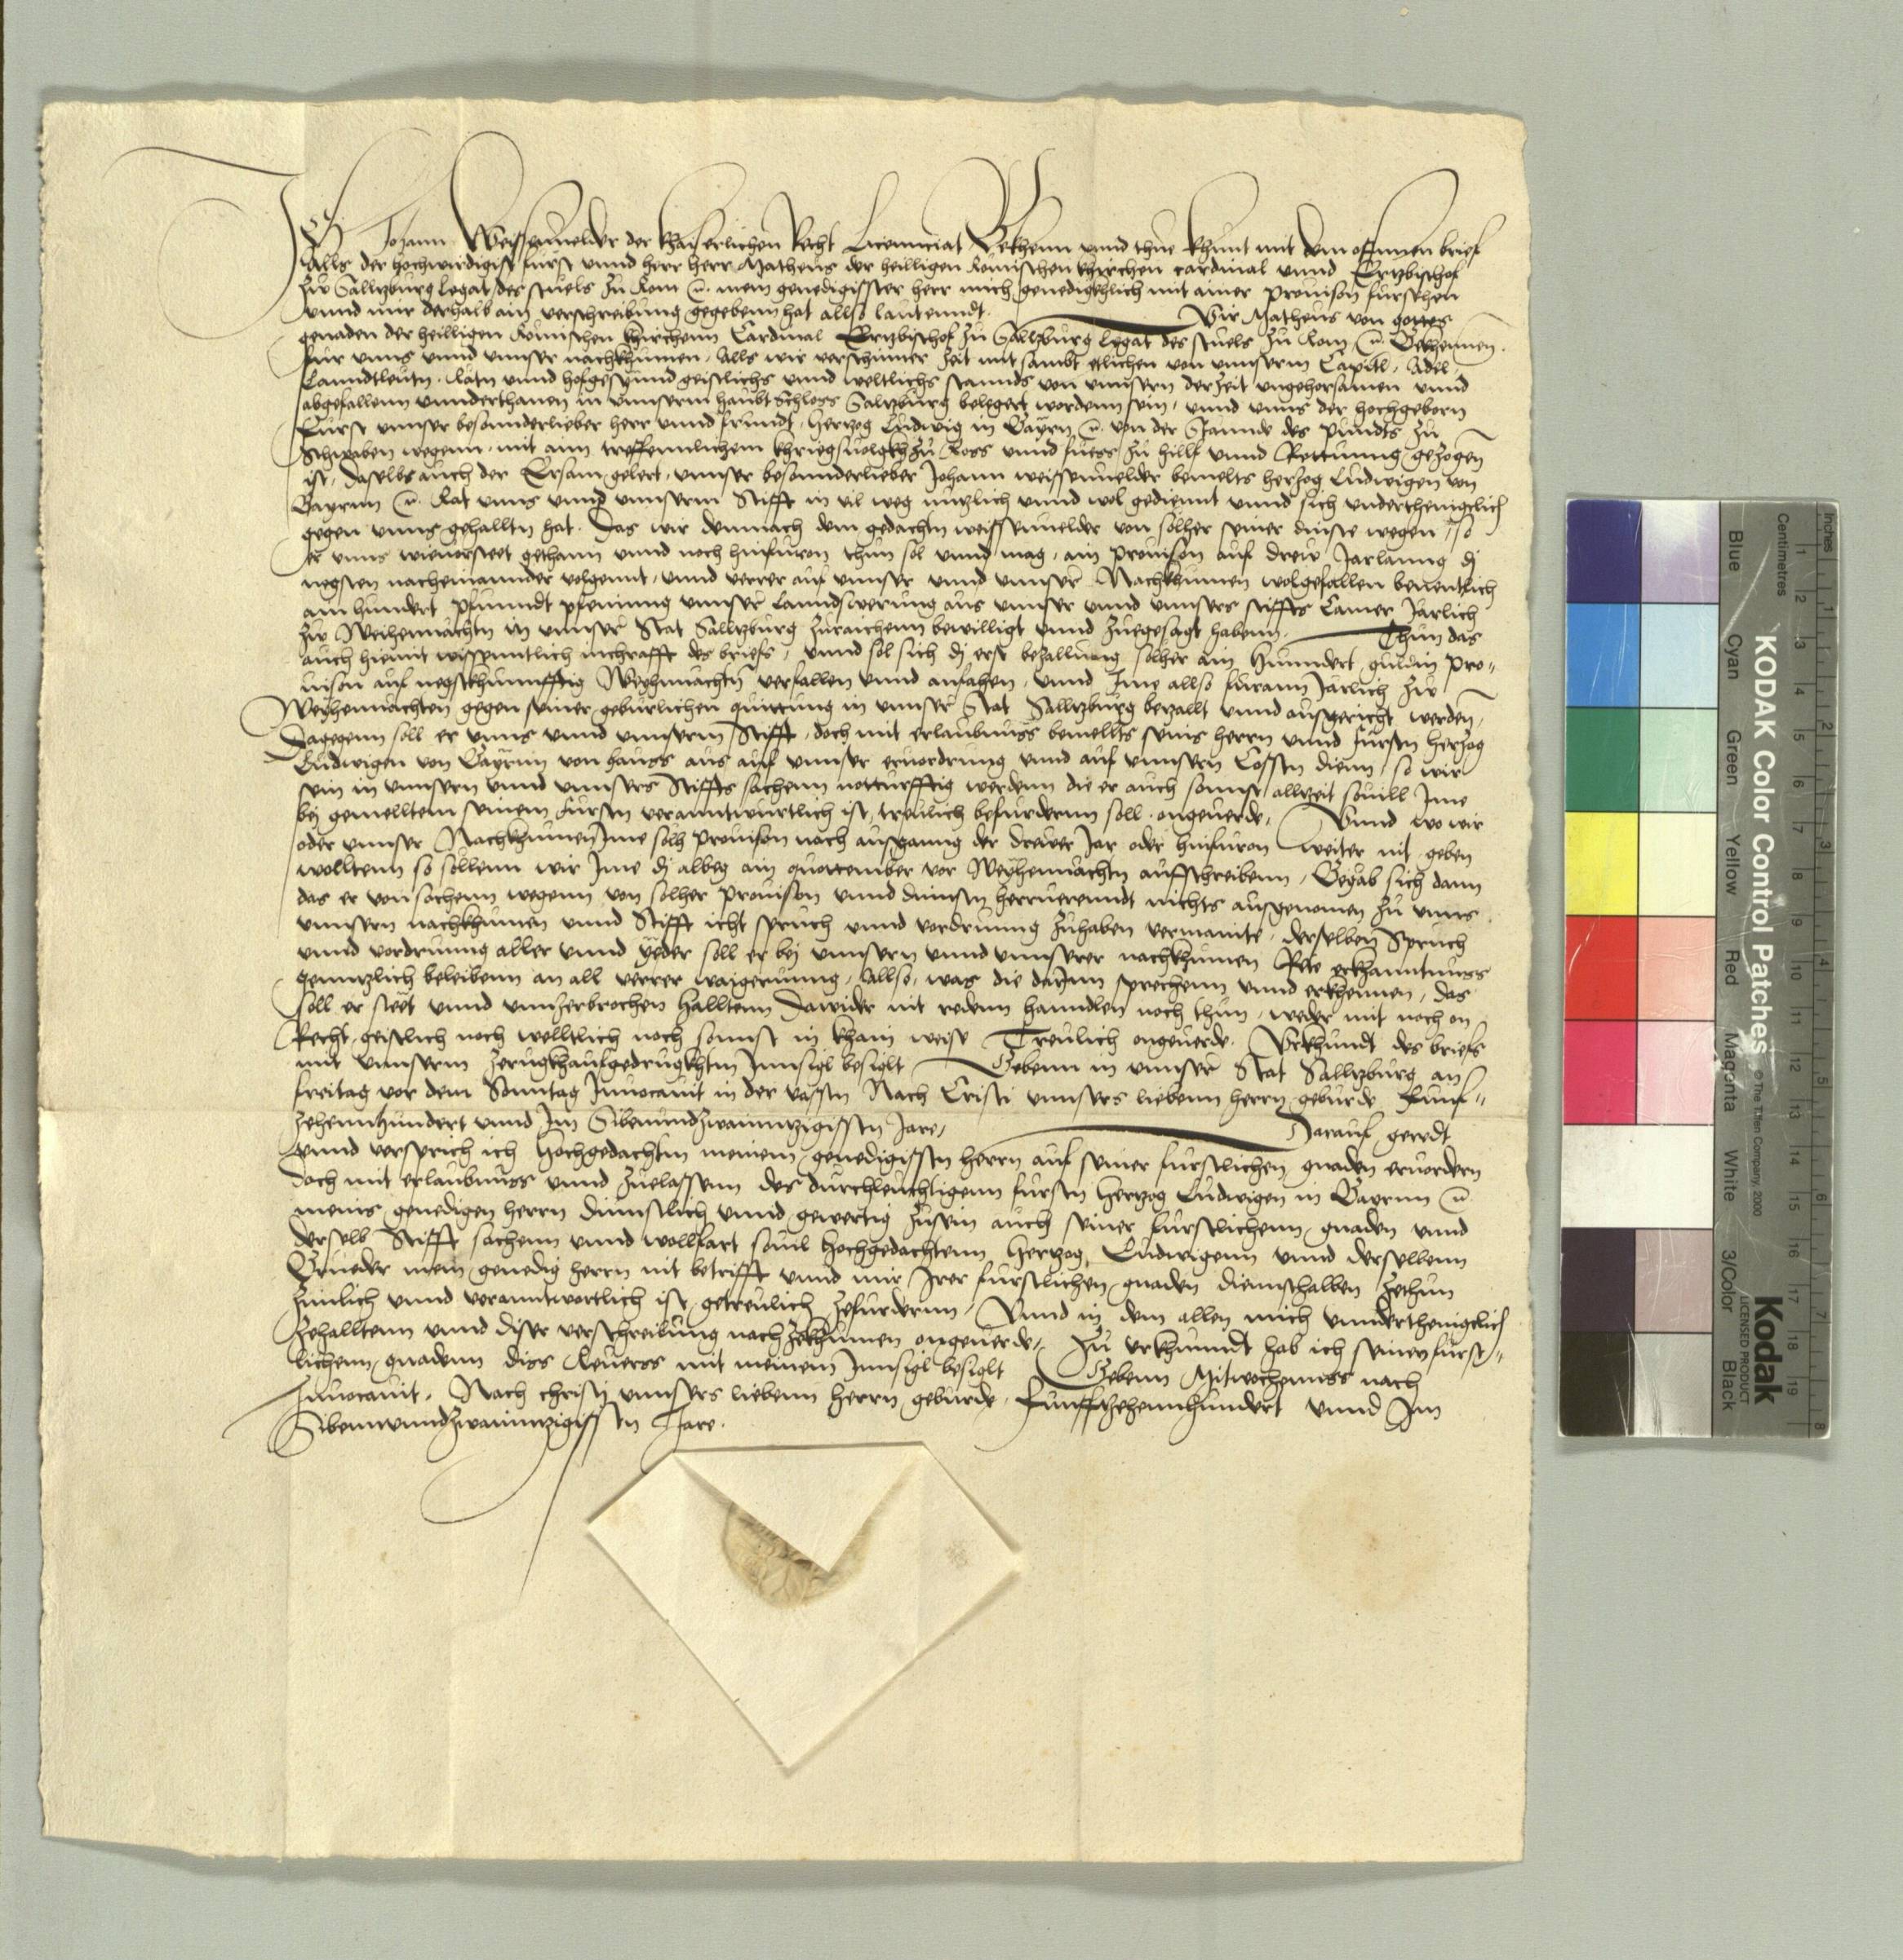 Ich Johann Weissenuelder der Kaiserlichen Recht Licennciat Bekhenn vnnd thue khunt mit dem offennen brief
Alls der hochwirdigist furst vnnd herr herr Matheus der heilligen Romischen khirchen cardinal vnnd Ertzbischof
zu Salltzburg legat des stuels zu Rom etc. mein genedigister herr mich genedigchlich mit ainer prouison furschen
vnnd mir derhalb ain verschreibung gegebenn hat allso lautenndt. Wir Matheus von gottes
genaden der heilligen Römischen khirchenn Cardinal Ertzbischof zu Salltzburg Legat des stuels zu Rom etc. Bekhennen
für vnns vnnd vnnser nachkhumen, Alls wir verschiner zeit mit sambt etlichen von vnnserm Capitl, Adl
Lanndtleutn, Rätn vnnd hofgesynnd geistlichs vnnd weltlichs stannds von vnnsern derzeit vngehorsamen vnnd
abgefallenn vnnderthanen in vnnserm haubt Schloss Saltzburg belegert worden sein, vnnd vnns der hochgeborn
Fürst vnnser besonnderlieber herr vnnd frundt, hertzog Ludwig in Bayrn etc. von der Stannde des pundts zu
Schwaben wegenn, mit aim treffennlichem khriegsuolgkh zu Ross vnnd fuess zu hillf vnnd Rettunng gezogen
ist, daselbs auch der Ersam gelert, vnnser besonnderlieber Johann weissennuelder bemelts hertzog Ludwigen von
Bayrnn etc. Rat vnns vnnd vnnserm Stifft in vil weg nutzlich vnnd wol gediennt vnnd sich vndertheniglich
gegen vnns gehalltn hat. Das wir demnach dem gedachtn weissennuelder von solher seiner dinste wegen, so
er vnns wieuorsteet gethann vnnd noch hinfuron thun sol vnnd mag, ain prouison auf drew Jarlanng dj
negsten nacheinannder volgennt, vnnd verrer auf vnnser vnnd vnnser Nachkhumen wolgefallen benentlich
ain hundert pfunndt pfening vnnser lanndswerung aus vnnser vnnd vnnsers stiffts Camer Järlich
zu Weihennachtn in vnnser Stat Salltzburg zuraichenn bewilligt vnnd zuegesagt habenn. Thun das
auch hiemit wissenntlich inchrafft des briefs, vnnd sol sich dj erst bezallunng solher ain Hunndert guldin pro¬
uison auf negstkhunfftig Weyhennachtn verfallen vnnd anfahen, vnnd Ime allso furann Järlich zu
Weyhennachten gegen seiner geburlichen quittung in vnnser Stat Salltzburg betzallt vnnd ausgericht werden,
Dagegenn soll er vnns vnnd vnnserm Stifft, doch mit erlaubnuss bemellts seins herrn vnnd fürstn hertzog
Ludwigen von Bayrnn von hauss aus auf vnnser eruordrung vnnd auf vnnsern Costn dienn, so wir
sein in vnnsern vnnd vnnsers Stiffts sachenn notturfftig werdenn die er auch sonnst allzeit souill Ime
bej gemelltem seinem fürstn veranntwurtlich ist, treulich befurdernn soll ongeuerde, Vnnd wo wir
oder vnnser Nachkhumen Ime solh prouison nach ausganng der drewer Jar oder hinfuron weiter nit geben
wolltenn so sollenn wir Ime dj albeg ain quottember vor Weyhennachtn aufschreibenn, Begab sich dann
das er von sachenn wegenn von solher prouison vnnd dinnstn herruerenndt nichts ausgenomen zu vnns
vnnsern nachkhumen vnnd Stifft icht spruch vnnd vordrunng zuhaben vermainte, derselben Spruch
vnnd vordrunng aller vnnd yeder soll er bej vnnsern vnnd vnnserer nachkhumen Rete erkhanntnuss
genntzlich beleibenn an all verrer waigerunng, Allso, was die darJnn sprechenn vnnd erkhennen, das
soll er steet vnnd vnnzerbrochen halltenn Dawider nit redenn hanndlen noch thun, weder mit noch on
Recht, geistlich noch welltlich noch sonnst in khain weise Treulich ongeuerde. Vrkhundt des briefs
mit vnnserm zerugkhaufgedrugkhtn Innsigl besiglt Gebenn in vnnser Stat Salltzburg an
freitag vor dem Sonntag Inuocauit in der vastn Nach Cristi vnnsers liebenn herrn geburde Funf¬
zehennhundert vnnd Im Sibenundzwainntzigistn Jare, Darauf geredt
vnnd versprich ich hochgedachtm meinem genedigistn herrn auf seiner furstlichen gnaden eruordern
doch mit erlaubnuss vnnd zuelassenn des durchleuchtigenn furstn hertzog Ludwigen in Bayrnn etc.
meins genedigen herrn dinnstlich vnnd gewertig zusein auch seiner furstlichenn gnaden vnnd
derselb Stifft sachenn vnnd wollfart souil hochgedachtenn hertzog Ludwigenn vnnd derselbenn
Brueder mein genedig herrn nit betrifft vnnd mir Irer furstlichen gnaden diennsthalben zethun
zimlich vnnd veranntwortlich ist getreulich zefurdernn, Vnnd in dem allen mich vnnderthenigclich
zehalltenn vnnd diser verschreibung nachzekhumen ongeuerde, Zu vrkhunndt hab ich seinen furst¬
lichenn gnadenn diss Reuerss mit meinem Innsigl besiglt Gebenn Mitwochenns nach
Inuocauit, Nach christj vnnsers liebenn herrn geburde, Funffzehennhundert vnnd Im
Sibennvnndzwainntzigistn Jare.
KODAK Color Control Patches © The Tiffen Company, 2000 Kodak
LICENSED PRODUCT
Blue Cyan Green Yellow Red Magenta White 3/Color Black
Inches 1 2 3 4 5 6 7 8
Centimetres 1 2 3 4 5 6 7 8 9 10 11 12 13 14 15 16 17 18 19